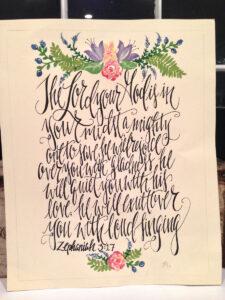 The Lord your God is in
your midst, a mighty
one to save, he will rejoice
over you with gladness, he
will quiet you with his
love. He will exult over
you with loud singing
Zephaniah 3:17